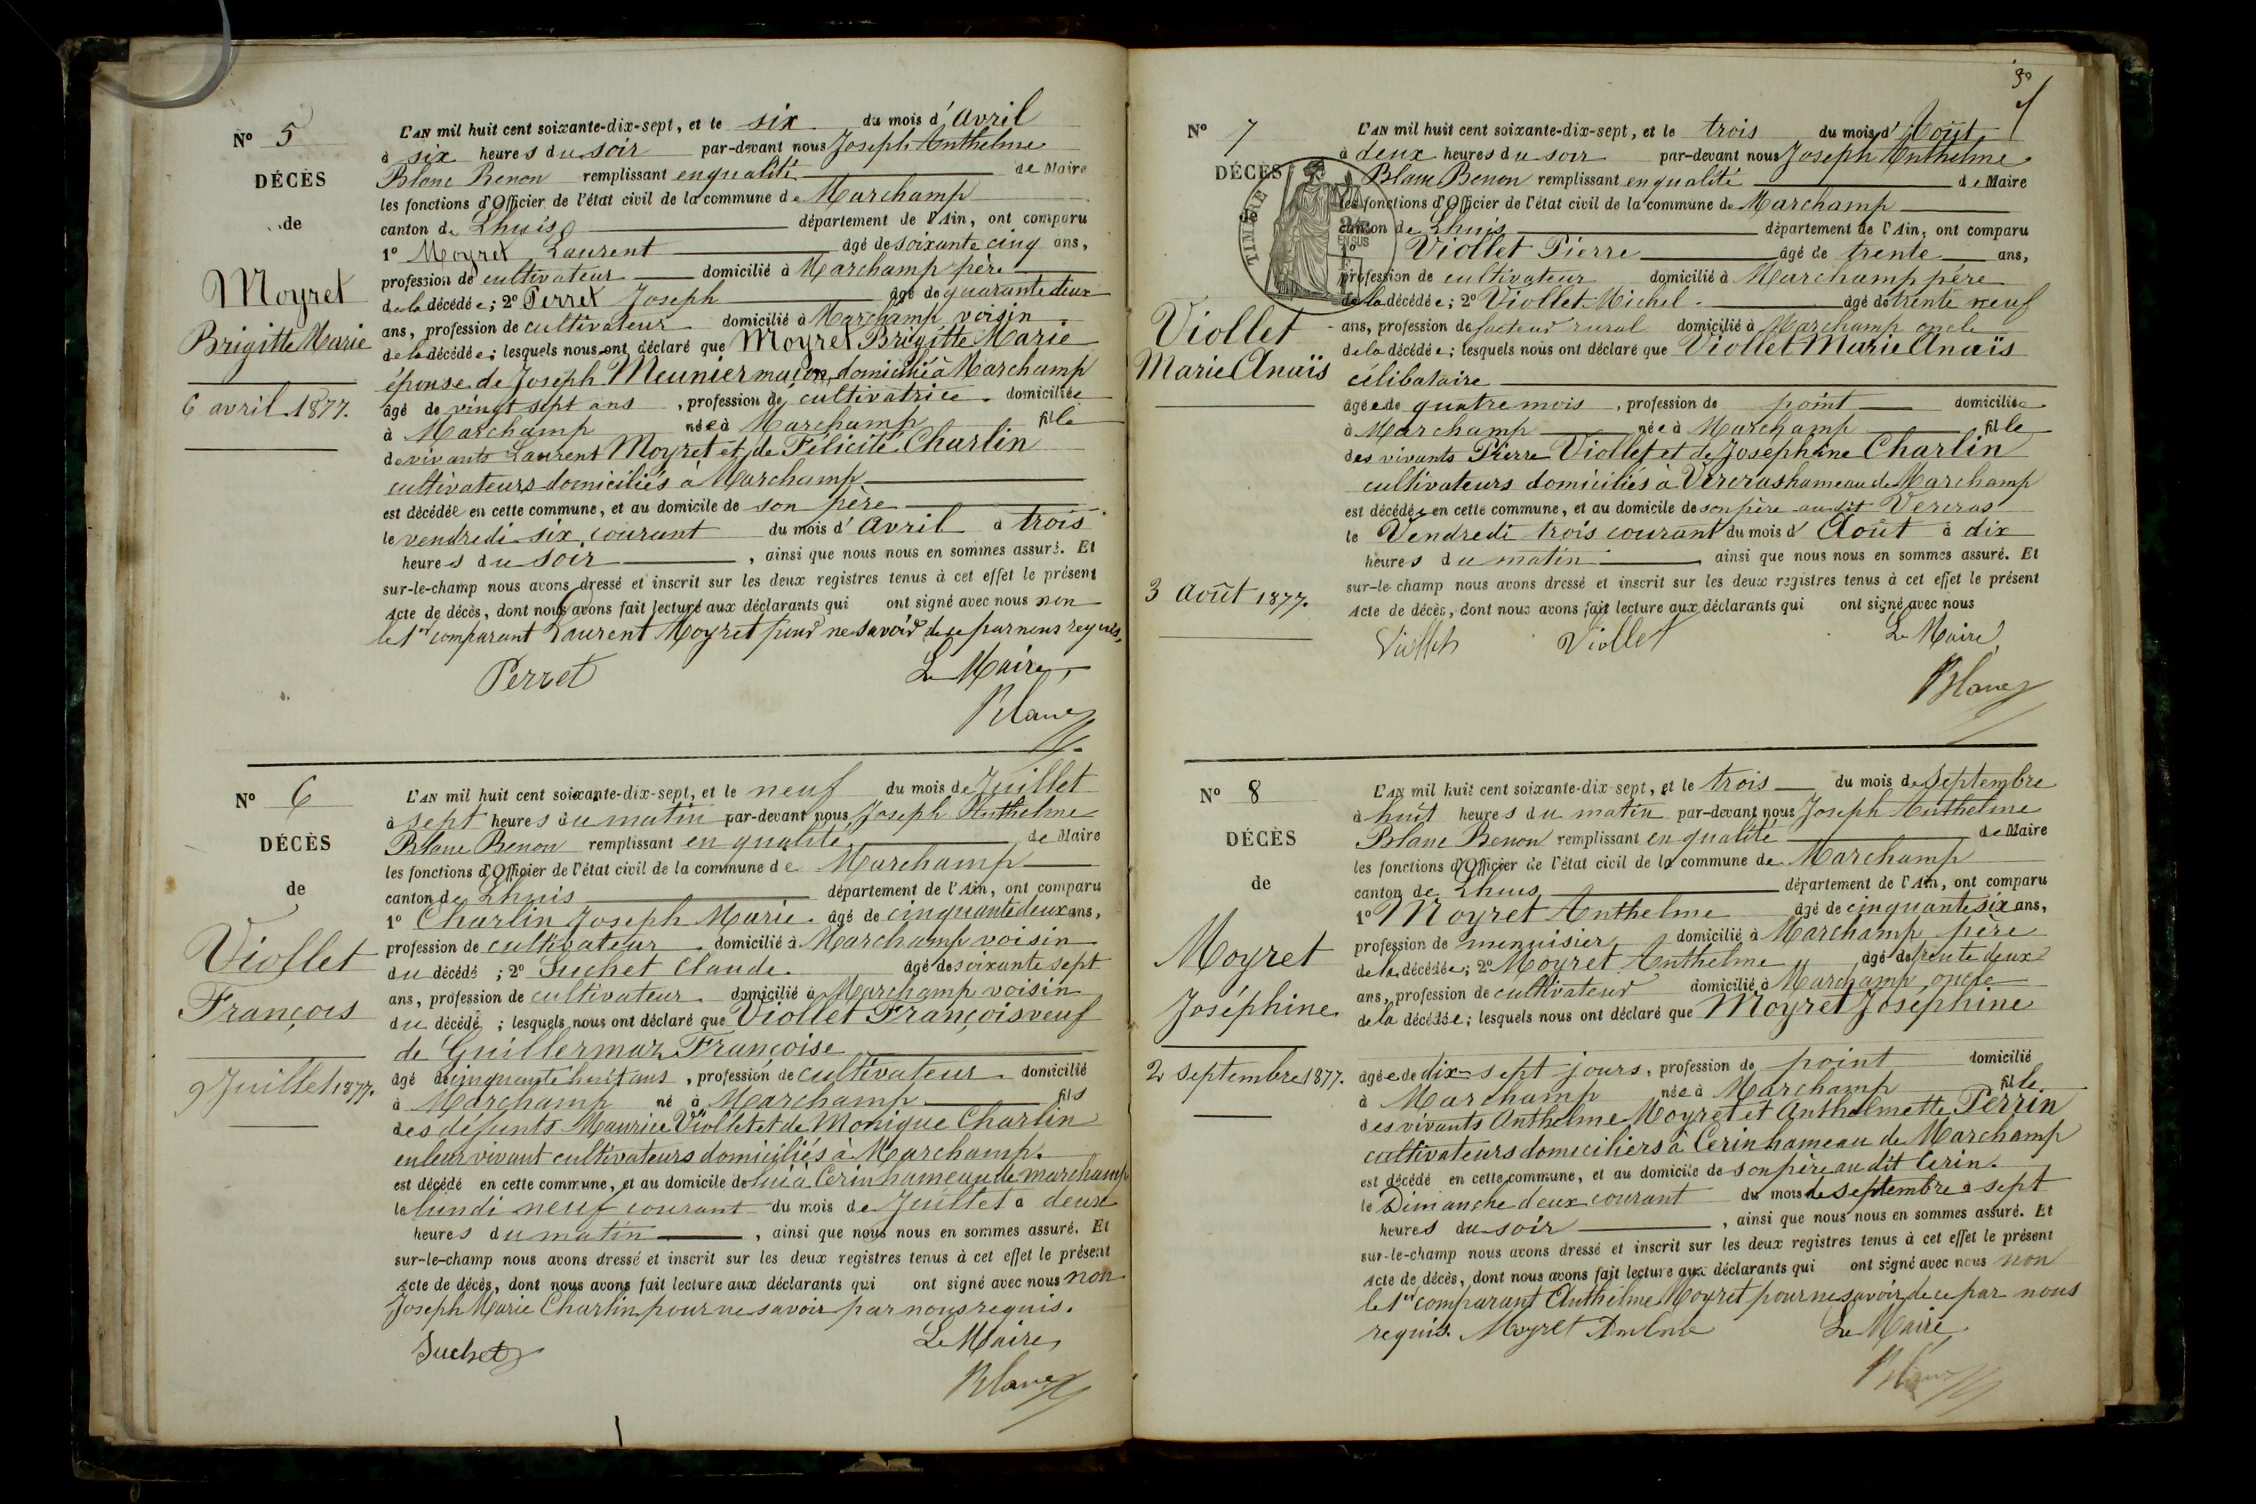 N° 5
DÉCÈS
de
Moyret
Brigitte Marie
6 avril 1877.
L'AN mil huit cent soixante-dix-sept, et le six du mois d'Avril
à six heures du soir par-devant nous Joseph Anthelme
Blanc Benon remplissant en qualité de Maire
les fonctions d'Officier de l'état civil de la commune de Marchamp
canton de Lhuis département de l'Ain, ont comparu
1° Moyret Laurent âgé de soixante cinq ans,
profession de cultivateur domicilié à Marchamp père
de la décédée; 2° Perret Joseph âgé de quarante deux
ans, profession de cultivateur domicilié à Marchamp voisin
de la décédée; lesquels nous ont déclaré que Moyret Brigitte Marie
épouse de Joseph Meunier maçon, domicilié à Marchamp
âgé de vingt sept ans, profession de cultivatrice domiciliée
à Marchamp née à Marchamp fille
de vivants Laurent Moyret et de Félicité Charlin
cultivateurs domiciliés à Marchamp
est décédée en cette commune, et au domicile de son père
le vendredi six courant du mois d'Avril à trois
heures du soir, ainsi que nous nous en sommes assuré. Et
sur-le-champ nous avons dressé et inscrit sur les deux registres tenus à cet effet le présent
Acte de décès, dont nous avons fait lecture aux déclarants qui ont signé avec nous non
le 1er comparant Laurent Moyret pour ne savoir de ce par nous requis.
Perret Le Maire,
Blanc
N° 6
DÉCÈS
de
Viollet
François
9 Juillet 1877.
L'AN mil huit cent soixante-dix-sept, et le neuf du mois de Juillet
à sept heures du matin par-devant nous Joseph Anthelme
Blanc Benon remplissant en qualité de Maire
les fonctions d'Officier de l'état civil de la commune de Marchamp
canton de Lhuis département de l'Ain, ont comparu
1° Charlin Joseph Marie. âgé de cinquante deux ans,
profession de cultivateur domicilié à Marchamp voisin
du décédé; 2° Suchet Claude. âgé de soixante sept
ans, profession de cultivateur domicilié à Marchamp voisin
du décédé; lesquels nous ont déclaré que Viollet François veuf
de Guillermaz Françoise
âgé de cinquante huit ans, profession de cultivateur domicilié
à Marchamp né à Marchamp fils
des défunts Maurice Viollet et de Monique Charlin
en leur vivant cultivateurs domiciliés à Marchamp.
est décédé en cette commune, et au domicile de lui à Cerin hameau de marchamp
le lundi neuf courant du mois de Juillet à deux
heures du matin, ainsi que nous nous en sommes assuré. Et
sur-le-champ nous avons dressé et inscrit sur les deux registres tenus à cet effet le présent
Acte de décès, dont nous avons fait lecture aux déclarants qui ont signé avec nous non
Joseph Marie Charlin pour ne savoir par nous requis.
Suchet Le Maire,
Blanc
N° 7
DÉCÈS
de
TIMBRE
Viollet
Marie Anaïs
3 Août 1877.
L'AN mil huit cent soixante-dix-sept, et le trois du mois d'Août
à deux heures du soir par-devant nous Joseph Anthelme
Blanc Benon remplissant en qualité de Maire
les fonctions d'Officier de l'état civil de la commune de Marchamp
canton de Lhuis département de l'Ain, ont comparu
1° Viollet Pierre âgé de trente ans,
profession de cultivateur domicilié à Marchamp père
de la décédée; 2° Viollet Michel âgé de trente neuf
ans, profession de facteur rural domicilié à Marchamp oncle
de la décédée; lesquels nous ont déclaré que Viollet Marie Anaïs
célibataire
âgée de quatre mois, profession de point domiciliée
à Marchamp née à Marchamp fille
des vivants Pierre Viollet et de Joséphine Charlin
cultivateurs domiciliés à Vercras hameau de Marchamp
est décédée en cette commune, et au domicile de son père au dit Vercras
le Vendredi trois courant du mois d'Août à dix
heures du matin ainsi que nous nous en sommes assuré. Et
sur-le-champ nous avons dressé et inscrit sur les deux registres tenus à cet effet le présent
Acte de décès, dont nous avons fait lecture aux déclarants qui ont signé avec nous
Viollet Viollet Le Maire,
Blanc
N° 8
DÉCÈS
de
Moyret
Joséphine
2 Septembre 1877.
L'AN mil huit cent soixante-dix-sept, et le trois du mois de Septembre
à huit heures du matin par-devant nous Joseph Anthelme
Blanc Benon remplissant en qualité de Maire
les fonctions d'Officier de l'état civil de la commune de Marchamp
canton de Lhuis département de l'Ain, ont comparu
1° Moyret Anthelme âgé de cinquante six ans,
profession de menuisier domicilié à Marchamp père
de la décédée; 2° Moyret Anthelme âgé de trente deux
ans, profession de cultivateur domicilié à Marchamp oncle
de la décédée; lesquels nous ont déclaré que Moyret Joséphine
âgée de dix-sept jours, profession de point domicilié
à Marchamp née à Marchamp fille
des vivants Anthelme Moyret et Anthelmette Perrin
cultivateurs domiciliers à Cerin hameau de Marchamp
est décédé en cette commune, et au domicile de son père au dit Cerin.
le Dimanche deux courant du mois de septembre à sept
heures du soir, ainsi que nous nous en sommes assuré. Et
sur-le-champ nous avons dressé et inscrit sur les deux registres tenus à cet effet le présent
Acte de décès, dont nous avons fait lecture aux déclarants qui ont signé avec nous non
le 1er comparant Anthelme Moyret pour ne savoir de ce par nous
requis. Moyret Le Maire
Blanc